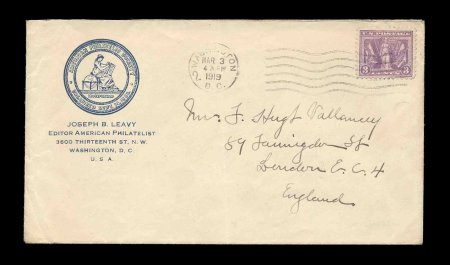 AMERICAN PHILATELIC SOCIETY
JOSEPH B. LEAVY
EDITOR AMERICAN PHILATELIST
3600 THIRTEENTH ST., N. W.
WASHINGTON, D. C.
U. S. A.
WASHINGTON
MAR 3
4 A M
1919
D. C.
U.S. POSTAGE
3 3
Mr. F. Hugh Vallancey
89 Farringdon St
London E. C. 4
England